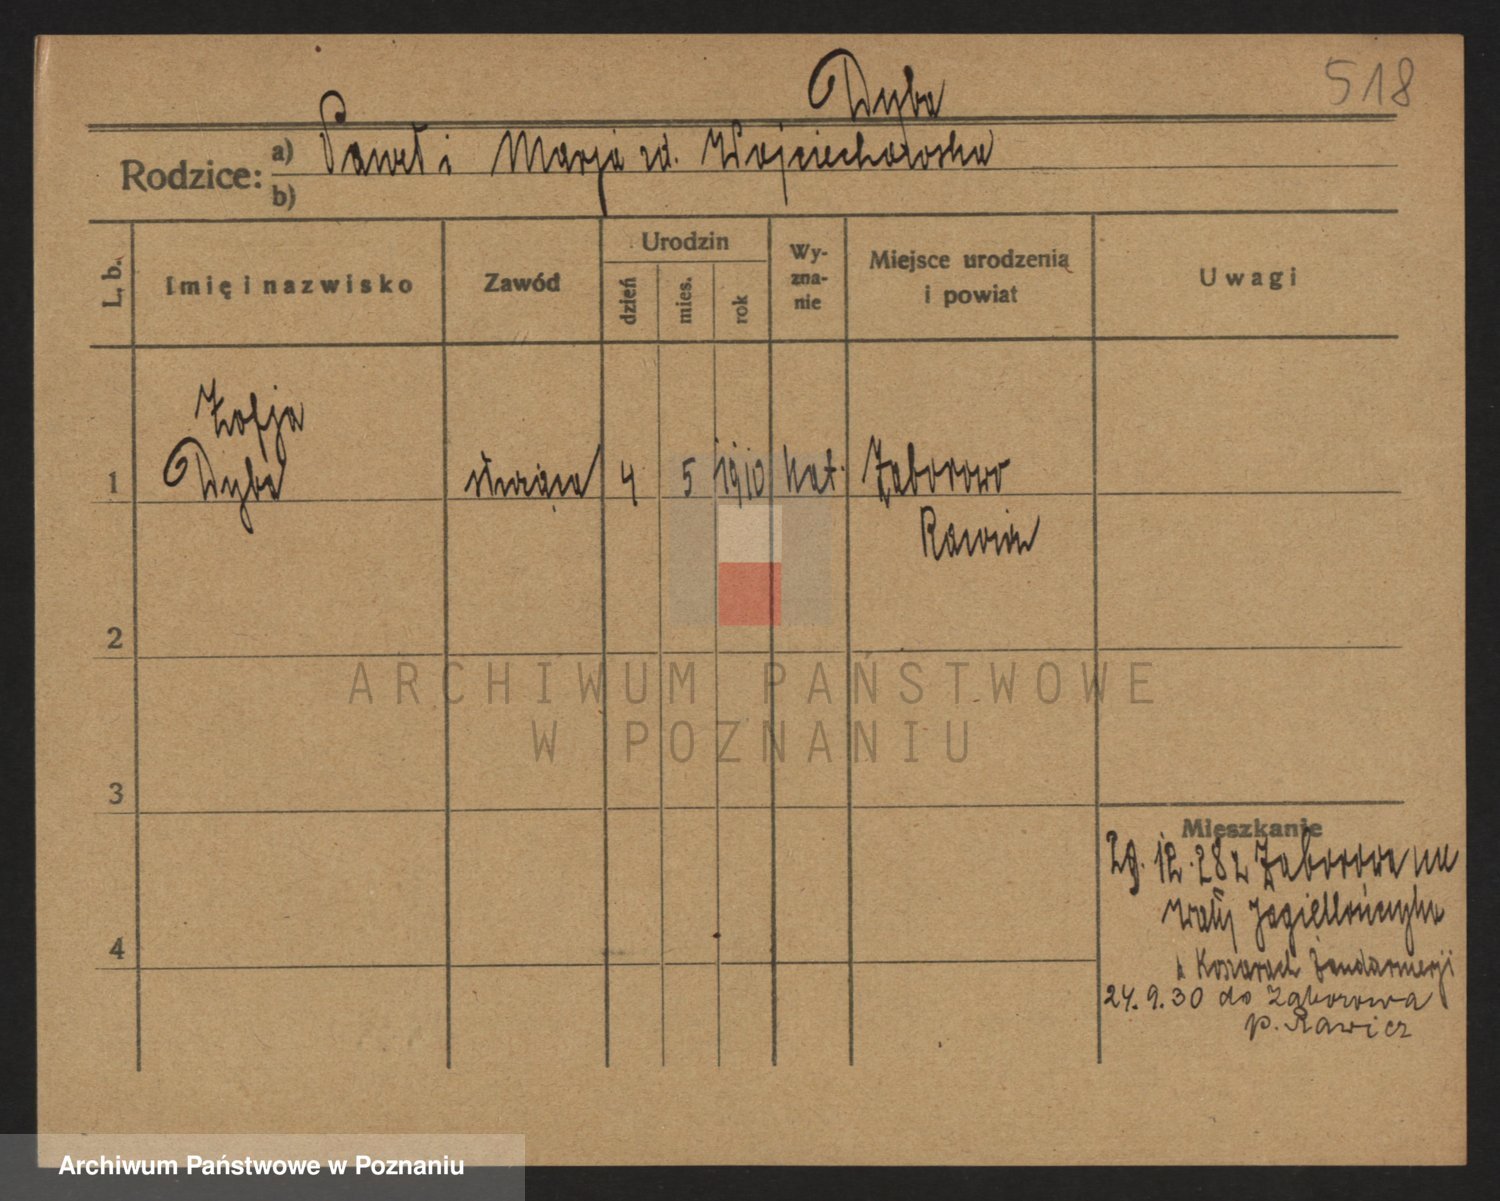 Dyba
518
Rodzice: a) Paweł i Marja zd. Wojciechowska
b)
L. b. Imię i nazwisko Zawód Urodzin dzień mies. rok Wyznanie Miejsce urodzenia i powiat Uwagi
Zofja
1 Dyba służąca 4 5 1910 kat. Zaborowo
Rawicz
2
ARCHIWUM PAŃSTWOWE
W POZNANIU
3
Mieszkanie
29. 12. 28 z Zaborowa na
Wały Jagiellończyka
Koszarach Żandarmerji
4
24. 9. 30 do Zaborowa
p. Rawicz
Archiwum Państwowe w Poznaniu